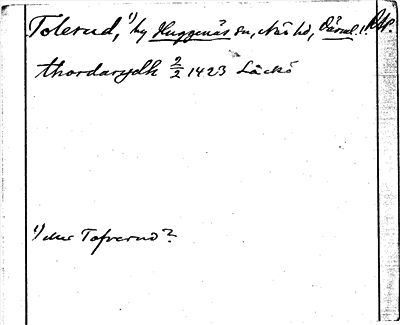 Tolerud, 1) by Huggenäs sn, Näs hd, Värml. l.
thordarydh 2/2 1423 Läckö
1) eller Tofverud?